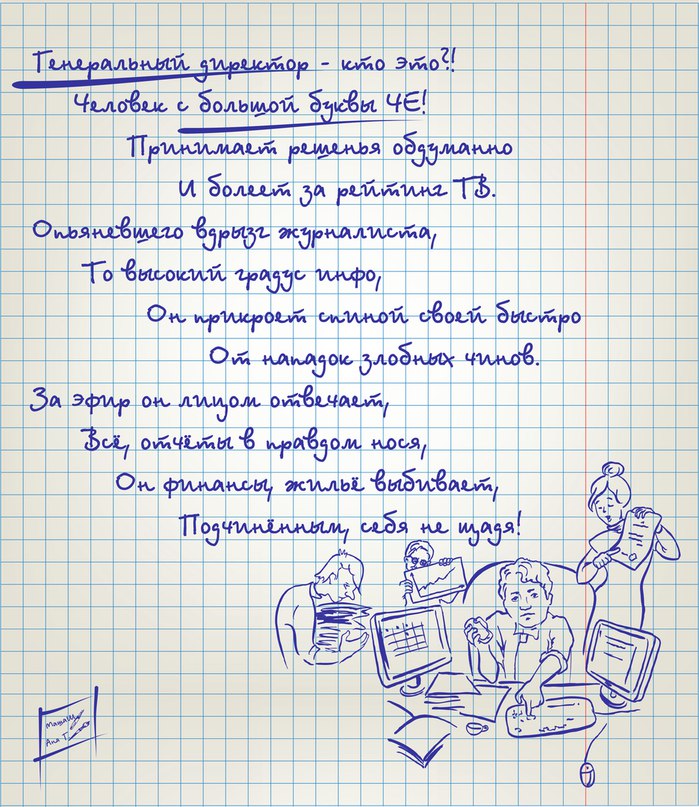 Генеральный директор - кто это?!
Человек с большой буквы ЧЕ!
Принимает решенья обдуманно
И болеет за рейтинг ТВ.
Опьяневшего вдрызг журналиста,
То высокий градус инфо,
Он прикроет спиной своей быстро
От нападок злобных чинов.
За эфир он лицом отвечает,
Всё, отчёты в правдом нося,
Он финансы, жильё выбивает,
Подчинённым, себя не щадя!
Аня Т.